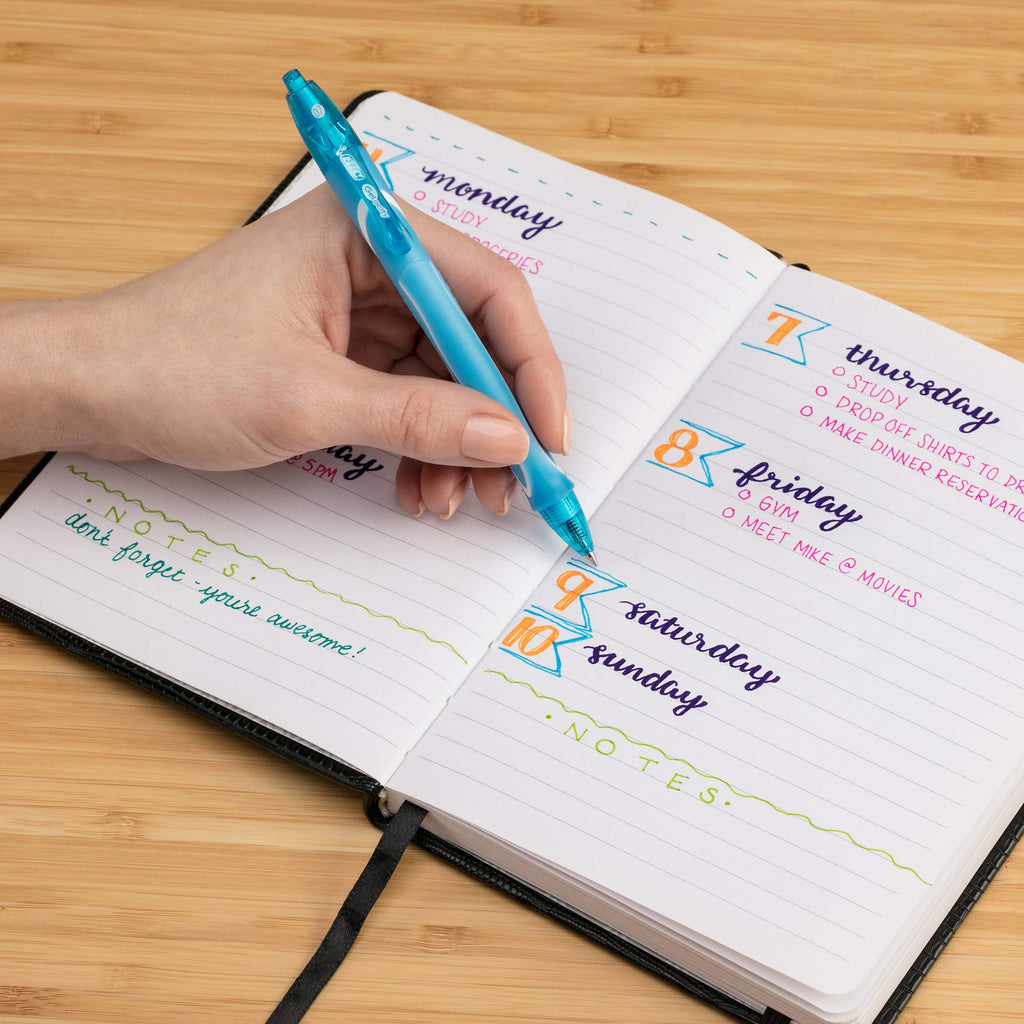 BIC
Gelocity
monday
STUDY
GROCERIES
@ 5PM
• NOTES •
don't forget - you're awesome!
7
thursday
STUDY
DROP OFF SHIRTS TO
MAKE DINNER
8
friday
GYM
MEET MIKE @ MOVIES
9
saturday
10
sunday
• NOTES •